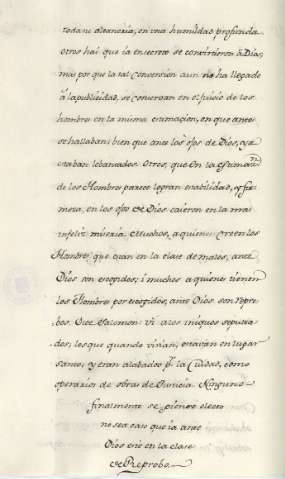 toda su altaneria, en una humildad profunda
otros hai que ia en secreto se convirtieron à Dios,
mas por que la tal conversion aun no ha llegado
à la publicidad, se conservan en el juicio de los
hombres en la misma estimacion, en que antes
se hallaban; bien que ante los ojos de Dios, ya es
taban lebantados. Otros, que en la estimaon
de los Hombres parece logran estabilidad, y fir
meza, en los ojos de Dios caieron en la mas
infeliz miseria. Muchos, a quienes creen los
Hombres, que estan en la clase de malos, ante
Dios son escogidos; i muchos a quienes tienen
los Hombres por escogidos, ante Dios son repro
bos. Dice Salomon: Vi a los iniquos sepulta
dos; los que quando vivian, estavan en lugar
santo, y eran alabados pr la Ciudad, como
operarios de obras de Justicia. Ninguno
finalmente se piense electo
no sea caso que ia ante
Dios esté en la clase
de Reprobo.